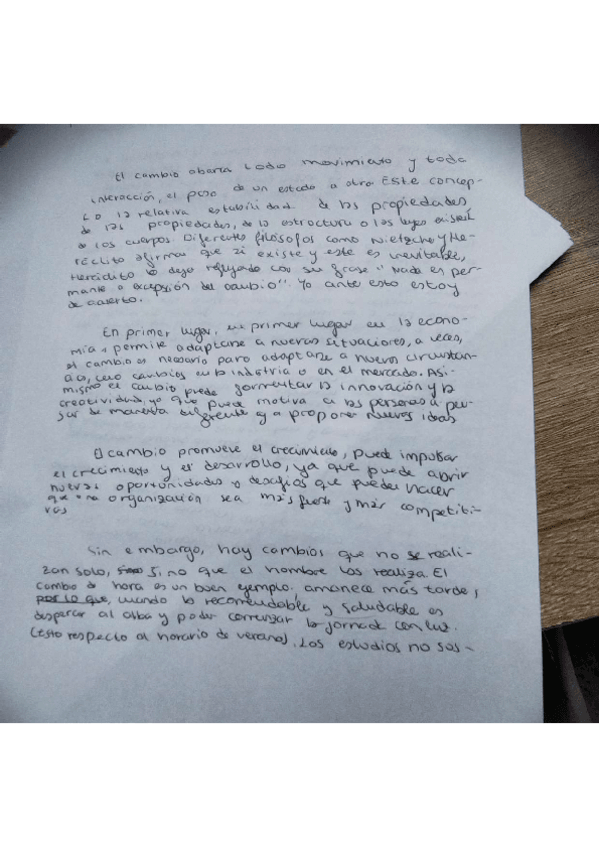 El cambio abarca todo movimiento y toda
interacción, el paso de un estado a otro. Este concep-
to la relativa estabilidad de las propiedades
de las propiedades, de la estructura o las leyes
de los cuerpos. Diferentes filósofos como Nietzche y He-
ráclito afirman que si existe y este es inevitable,
Heráclito lo dejo reflejado con su frase "Nada es per-
mante a excepción del cambio". Yo ante esto estoy
de acuerto.
En primer lugar, en primer lugar en la econo-
mía, permite adaptarse a nuevas situaciones, a veces,
el cambio es necesario para adaptarse a nuevas circunstan-
cias, como cambios en la industria o en el mercado. Asi-
mismo el cambio puede formentar la innovación y la
creatividad, ya que puede motiva a las personas a pen-
sar de manera diferente y a proponer nuevas ideas
El cambio promueve el crecimiento, puede impulsar
el crecimiento y el desarrollo, ya que puede abrir
nuevas oportunidades o desafios que pueden hacer
que una organización sea más fuerte y más competiti-
vas
Sin embargo, hay cambios que no se reali-
zan solo, si no que el hombre los realiza. El
cambio de hora es un buen ejemplo; amanece más tarde,
por lo que, cuando lo recomendable y saludable es
despertar al alba y poder comenzar la jornada con luz.
(esto respecto al horario de verano). Los estudios no sos-